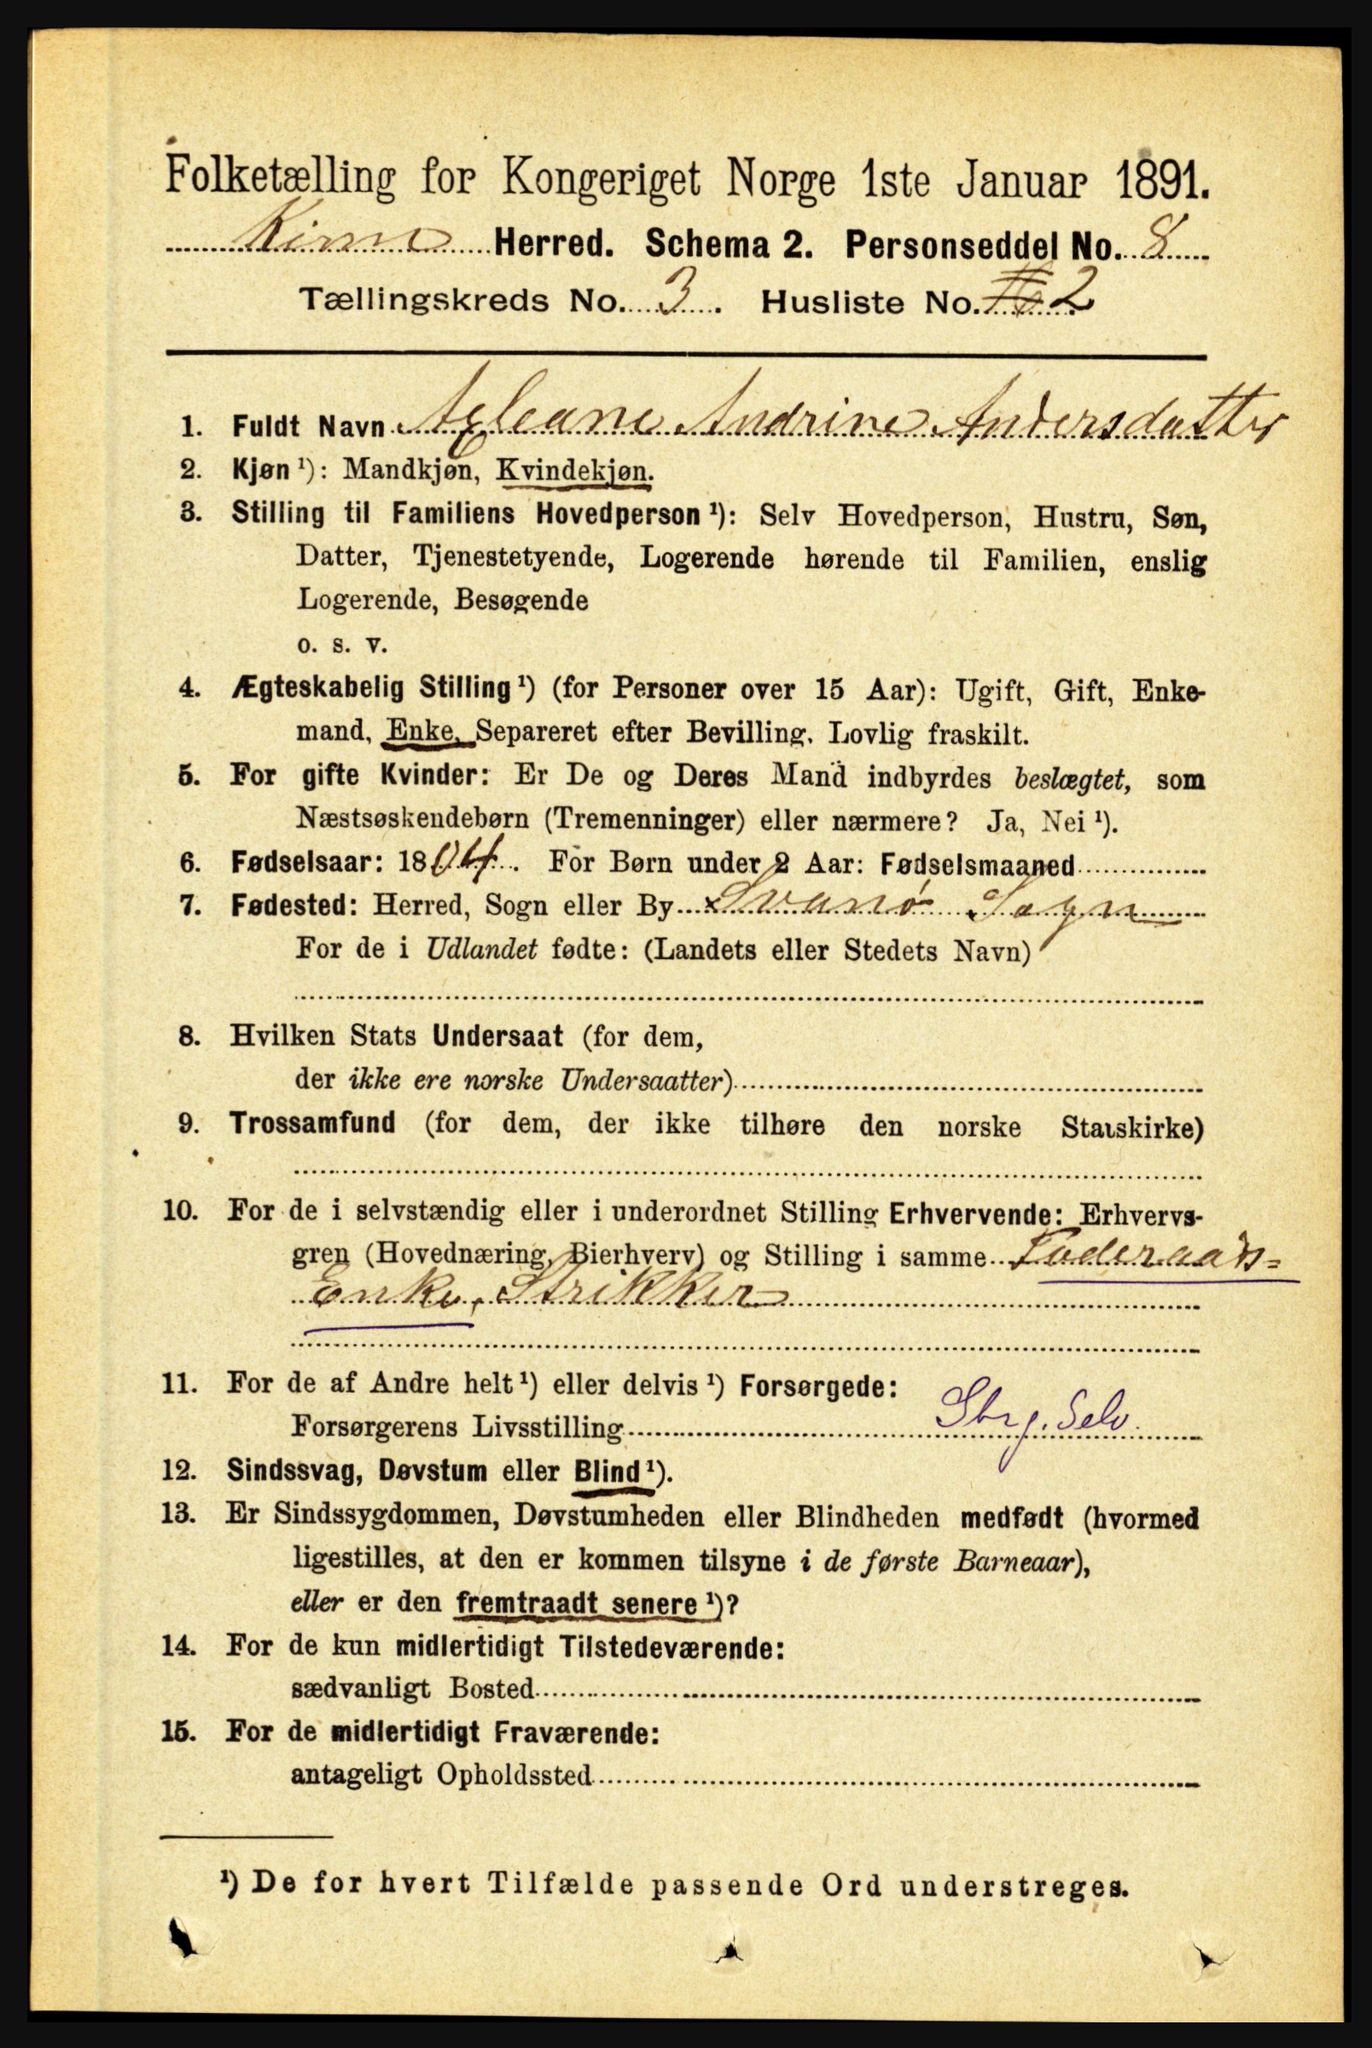 Folketælling for Kongeriget Norge 1ste Januar 1891.
Kinn Herred. Schema 2. Personseddel No. 8
Tællingskreds No. 3. Husliste No. 2
1. Fuldt Navn Andrine Andersdatter
2. Kjøn ¹): Mandkjøn, Kvindekjøn.
3. Stilling til Familiens Hovedperson ¹): Selv Hovedperson, Hustru, Søn,
Datter, Tjenestetyende, Logerende hørende til Familien, enslig
Logerende, Besøgende
o. s. v.
4. Ægteskabelig Stilling ¹) (for Personer over 15 Aar): Ugift, Gift, Enke-
mand, Enke, Separeret efter Bevilling. Lovlig fraskilt.
5. For gifte Kvinder: Er De og Deres Mand indbyrdes beslægtet, som
Næstsøskendebørn (Tremenninger) eller nærmere? Ja, Nei ¹).
6. Fødselsaar: 1804. For Børn under 2 Aar: Fødselsmaaned
7. Fødested: Herred, Sogn eller By Svanø Sogn
For de i Udlandet fødte: (Landets eller Stedets Navn)
8. Hvilken Stats Undersaat (for dem,
der ikke ere norske Undersaatter)
9. Trossamfund (for dem, der ikke tilhøre den norske Statskirke)
10. For de i selvstændig eller i underordnet Stilling Erhvervende: Erhvervs-
gren (Hovednæring, Bierhverv) og Stilling i samme Foderaads=
Enke, Strikker
11. For de af Andre helt ¹) eller delvis ¹) Forsørgede:
Forsørgerens Livsstilling Gbrg. Selv.
12. Sindssvag, Døvstum eller Blind ¹).
13. Er Sindssygdommen, Døvstumheden eller Blindheden medfødt (hvormed
ligestilles, at den er kommen tilsyne i de første Barneaar),
eller er den fremtraadt senere ¹)?
14. For de kun midlertidigt Tilstedeværende:
sædvanligt Bosted
15. For de midlertidigt Fraværende:
antageligt Opholdssted
¹) De for hvert Tilfælde passende Ord understreges.